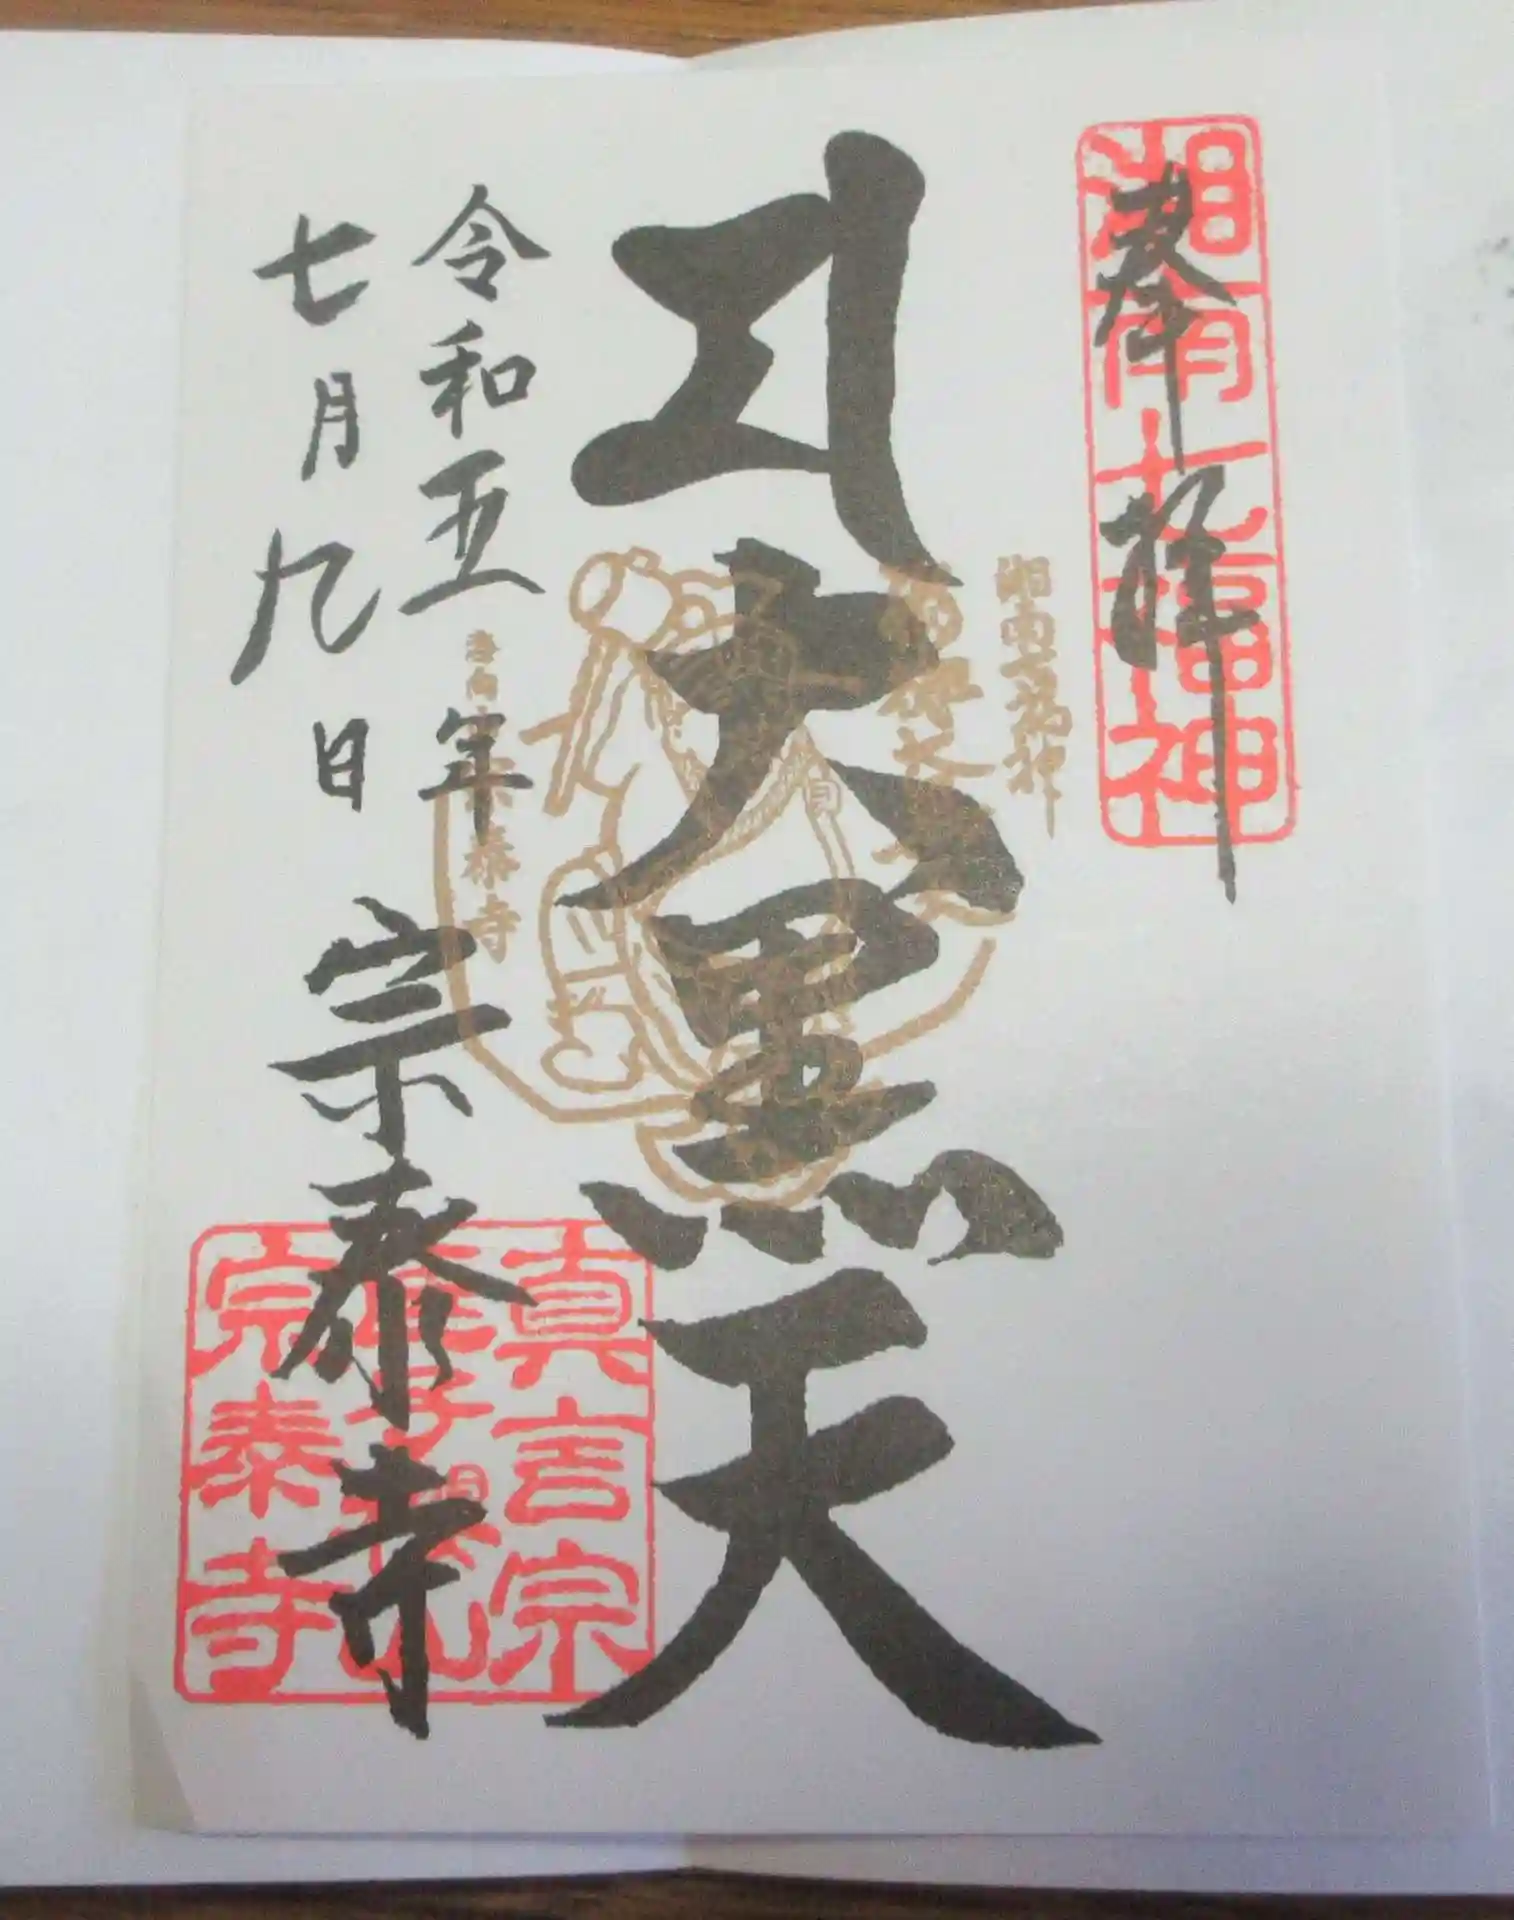 奉拝
湘南七福神
湘南七福神
大黒天
令和五年
七月九日
宗泰寺
真言宗
宗泰寺